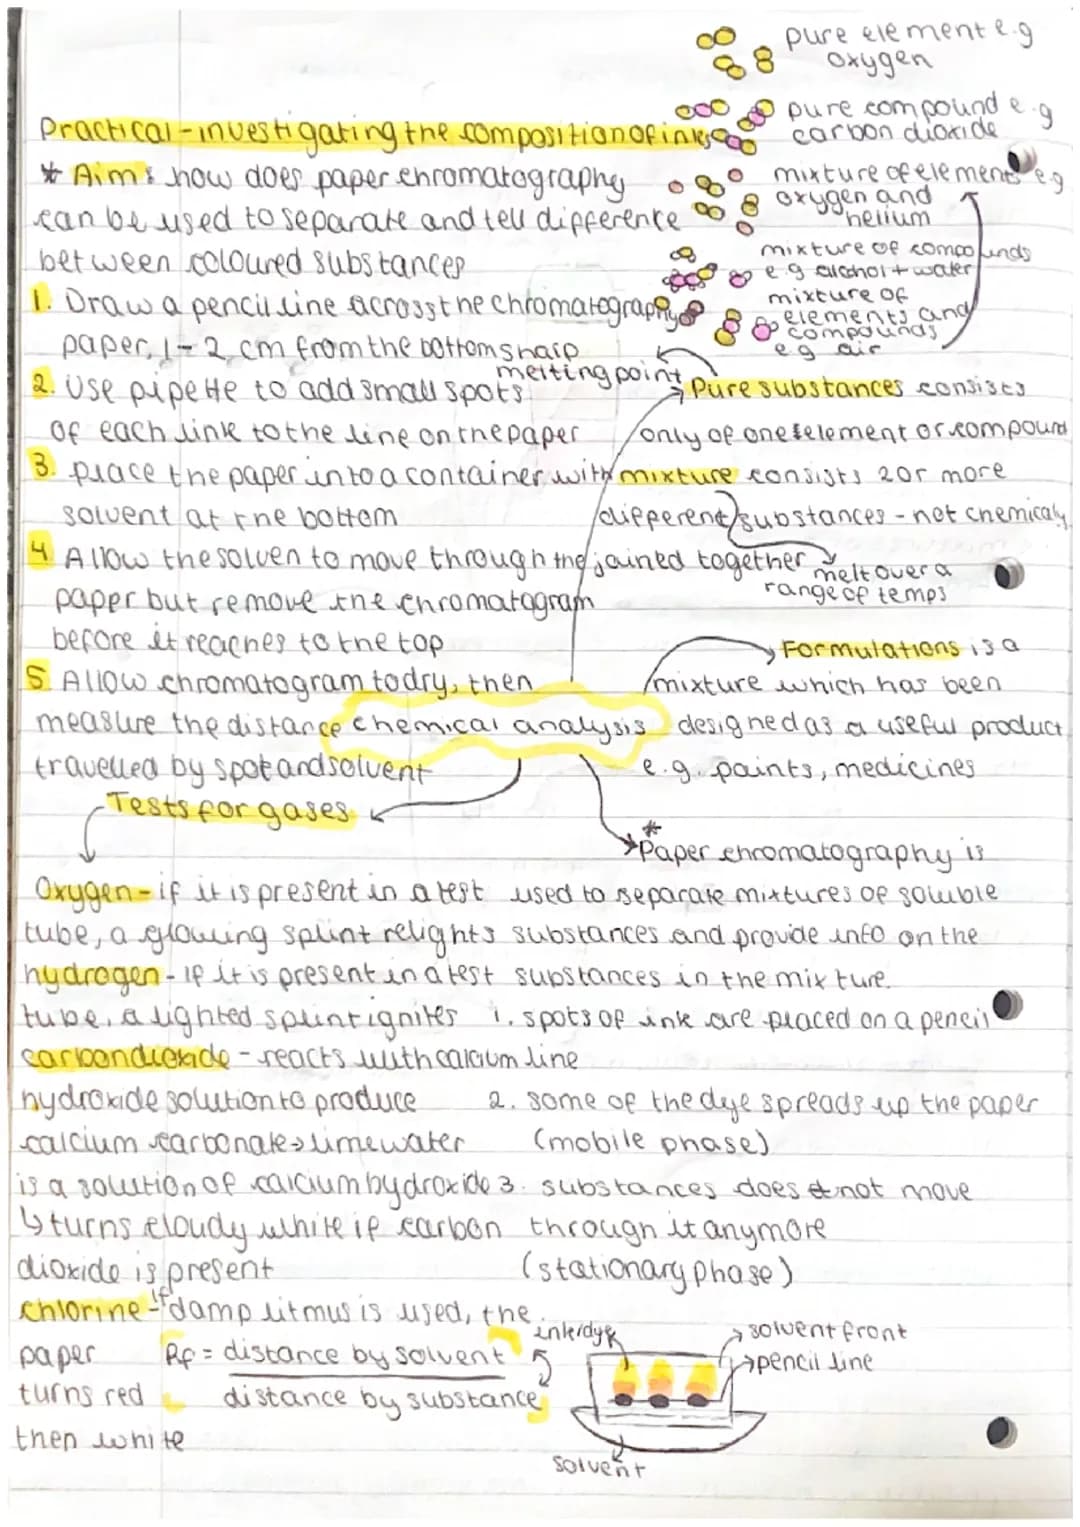 pure element e.g
oxygen
pure compound e.g
carbon dioxide
mixture of elements e.g
oxygen and
helium
mixture of compounds
e.g alcohol + water
mixture of
elements and
compounds
e.g air
Practical - investigating the composition of inks
* Aim: how does paper chromatography
can be used to separate and tell difference
between coloured substances
1. Draw a pencil line across the chromatography
paper, 1-2 cm from the bottom
2. Use pipette to add small spots
of each ink to the line on the paper
3. place the paper into a container with
solvent at the bottom
4 Allow the solven to move through the
paper but remove the chromatogram
before it reaches to the top
5 Allow chromatogram to dry, then
measure the distance
travelled by spot and solvent
sharp
melting point
Pure substances consists
only of one element or compound
mixture consists 2 or more
different substances - not chemicaly
joined together
melt over a
range of temps
Formulations is a
mixture which has been
designed as a useful product
e.g. paints, medicines
chemical analysis
Tests for gases
Oxygen - if it is present in a test
tube, a glowing splint relights
hydrogen - if it is present in a test
tube, a lighted splint ignites
carbon dioxide - reacts with calcium
hydroxide solution to produce
calcium carbonate → limewater
is a solution of calcium hydroxide
↳ turns cloudy white if carbon
dioxide is present
chlorine - if damp litmus is used, the
paper
turns red
then white
*
Paper chromatography is
used to separate mixtures of soluble
substances and provide info on the
substances in the mixture.
1. spots of ink are placed on a pencil
line
2. some of the dye spreads up the paper
(mobile phase)
3. substances does not move
through it anymore
(stationary phase)
Rf = distance by solvent
distance by substance
ink/dye
solvent front
pencil line
solvent